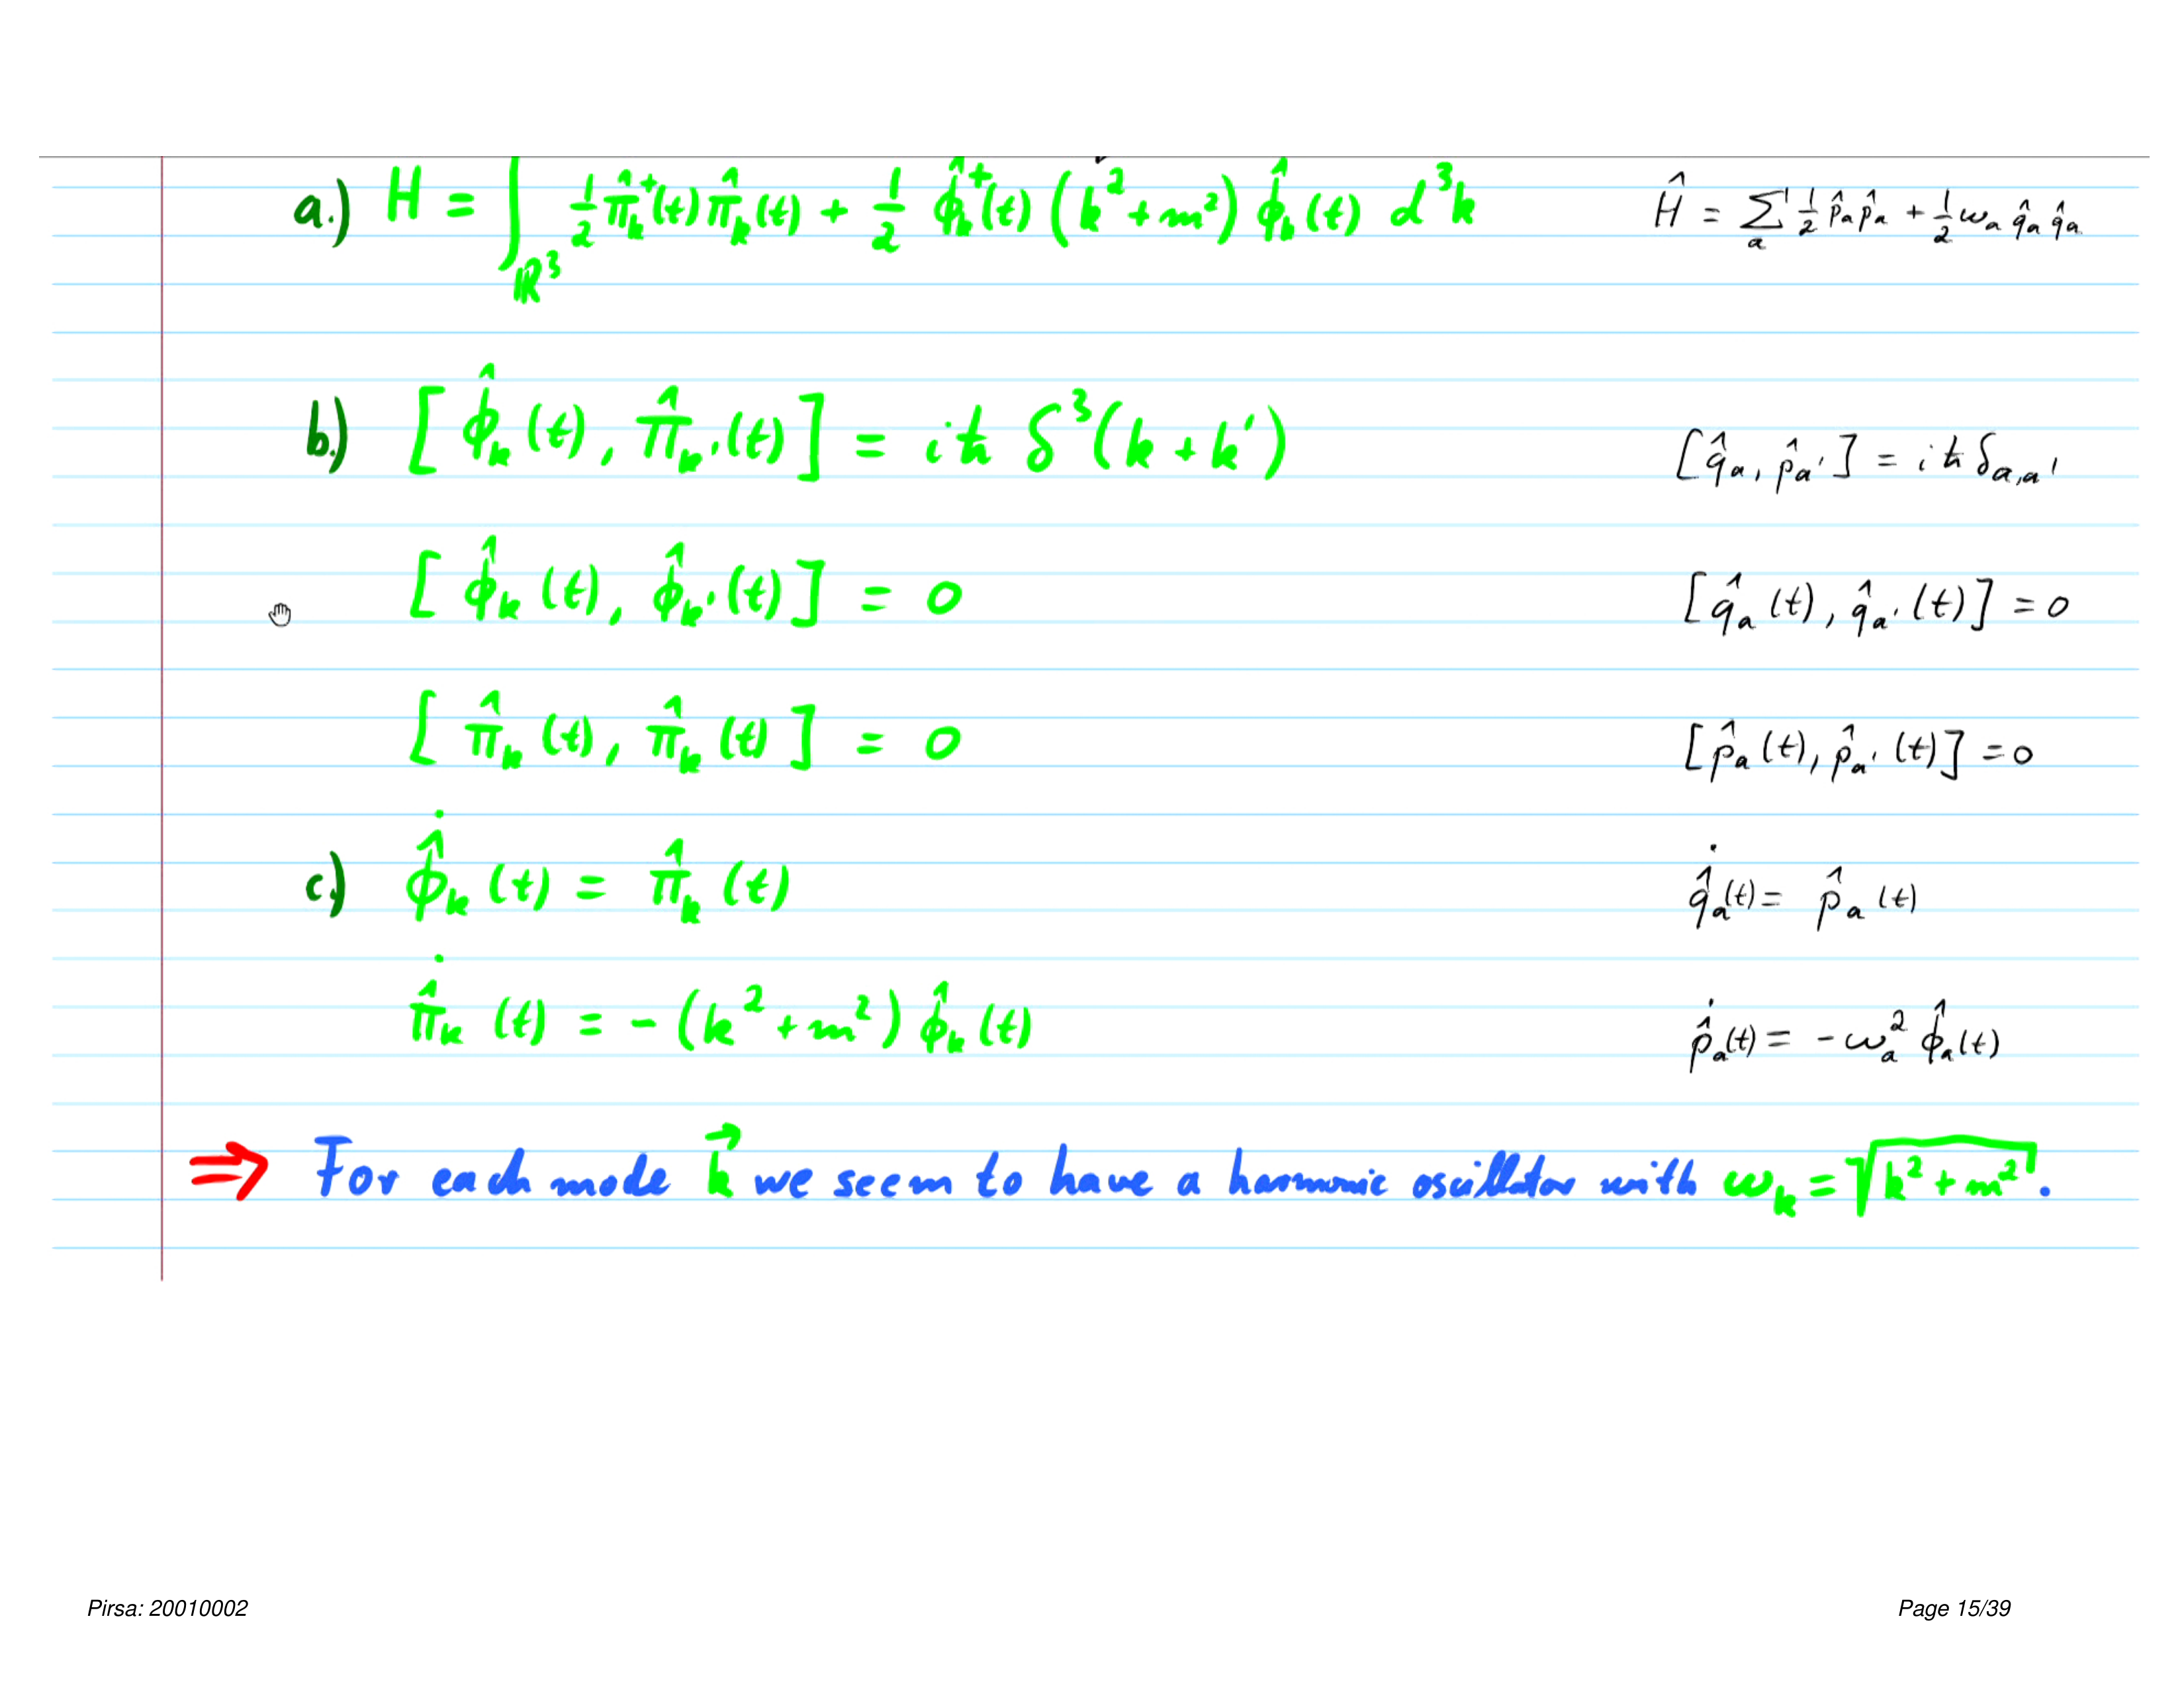 a.) H = ∫_{ℝ³} ½ π̂_k^†(t) π̂_k(t) + ½ φ̂_k^†(t) (k² + m²) φ̂_k(t) d³k Ĥ = Σ_a ½ p̂_a p̂_a + ½ ω_a q̂_a q̂_a
b.) [φ̂_k(t), π̂_k'(t)] = iħ δ³(k + k') [q̂_a, p̂_a'] = iħ δ_{a,a'}
[φ̂_k(t), φ̂_k'(t)] = 0 [q̂_a(t), q̂_a'(t)] = 0
[π̂_k(t), π̂_k(t)] = 0 [p̂_a(t), p̂_a'(t)] = 0
c.) φ̂̇_k(t) = π̂_k(t) q̂̇_a(t) = p̂_a(t)
π̂̇_k(t) = -(k² + m²) φ̂_k(t) p̂̇_a(t) = -ω_a² φ̂_a(t)
⇒ For each mode k⃗ we seem to have a harmonic oscillator with ω_k = √(k² + m²).
Pirsa: 20010002 Page 15/39